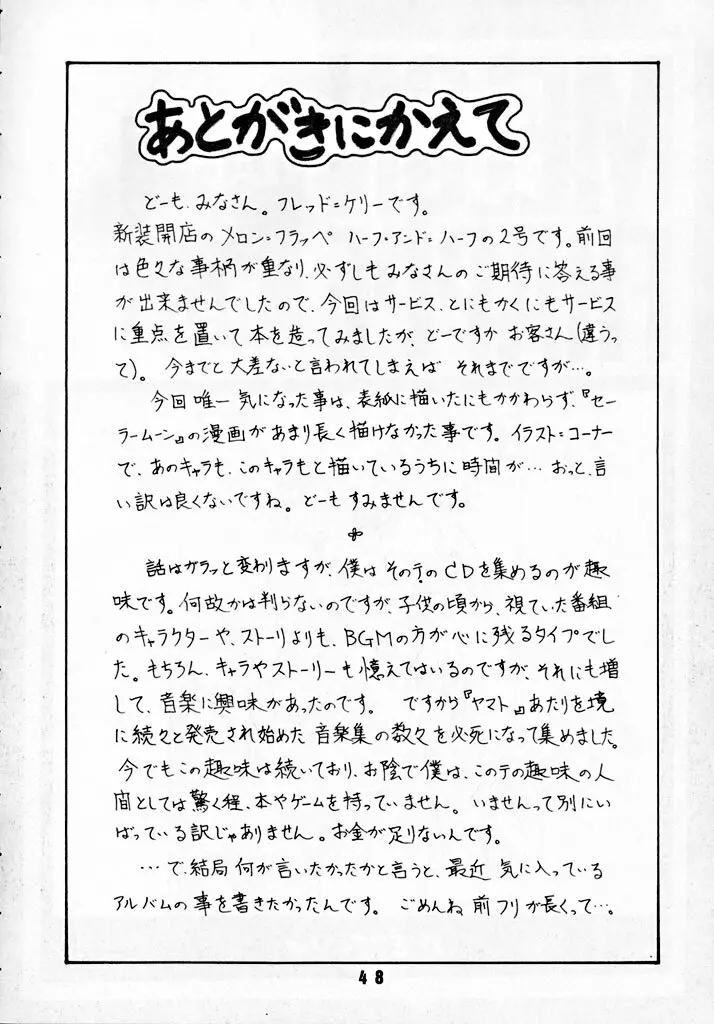 あとがきにかえて
どーも、みなさん。フレッド=ケリーです。
新装開店のメロン=フラッペ ハーフ=アンド=ハーフの2号です。前回
は色々な事柄が重なり、必ずしもみなさんのご期待に答える事
が出来ませんでしたので、今回はサービス、とにもかくにもサービス
に重点を置いて本を造ってみましたが、どーですか お客さん(違うっ
て)。 今までと大差ないと言われてしまえば それまでですが…。
今回唯一気になった事は、表紙に描いたにもかかわらず、『セー
ラームーン』の漫画があまり長く描けなかった事です。イラスト=コーナー
で、あのキャラも、このキャラもと描いているうちに時間が…おっと、言
い訳は良くないですね。どーもすみませんです。
話はガラッと変わりますが、僕はその手のCDを集めるのが趣
味です。何故かは判らないのですが、子供の頃から、視ていた番組
のキャラクターや、ストーリよりも、BGMの方が心に残るタイプでし
た。もちろん、キャラやストーリーも憶えてはいるのですが、それにも増
して、音楽に興味があったのです。 ですから『ヤマト』あたりを境
に続々と発売され始めた音楽集の数々を必死になって集めました。
今でもこの趣味は続いており、お陰で僕は、この手の趣味の人
間としては驚く程、本やゲームを持っていません。いませんって別にい
ばっている訳じゃありません。お金が足りないんです。
…で、結局何が言いたかったかと言うと、最近気に入っている
アルバムの事を書きたかったんです。 ごめんね前フリが長くって…。
48